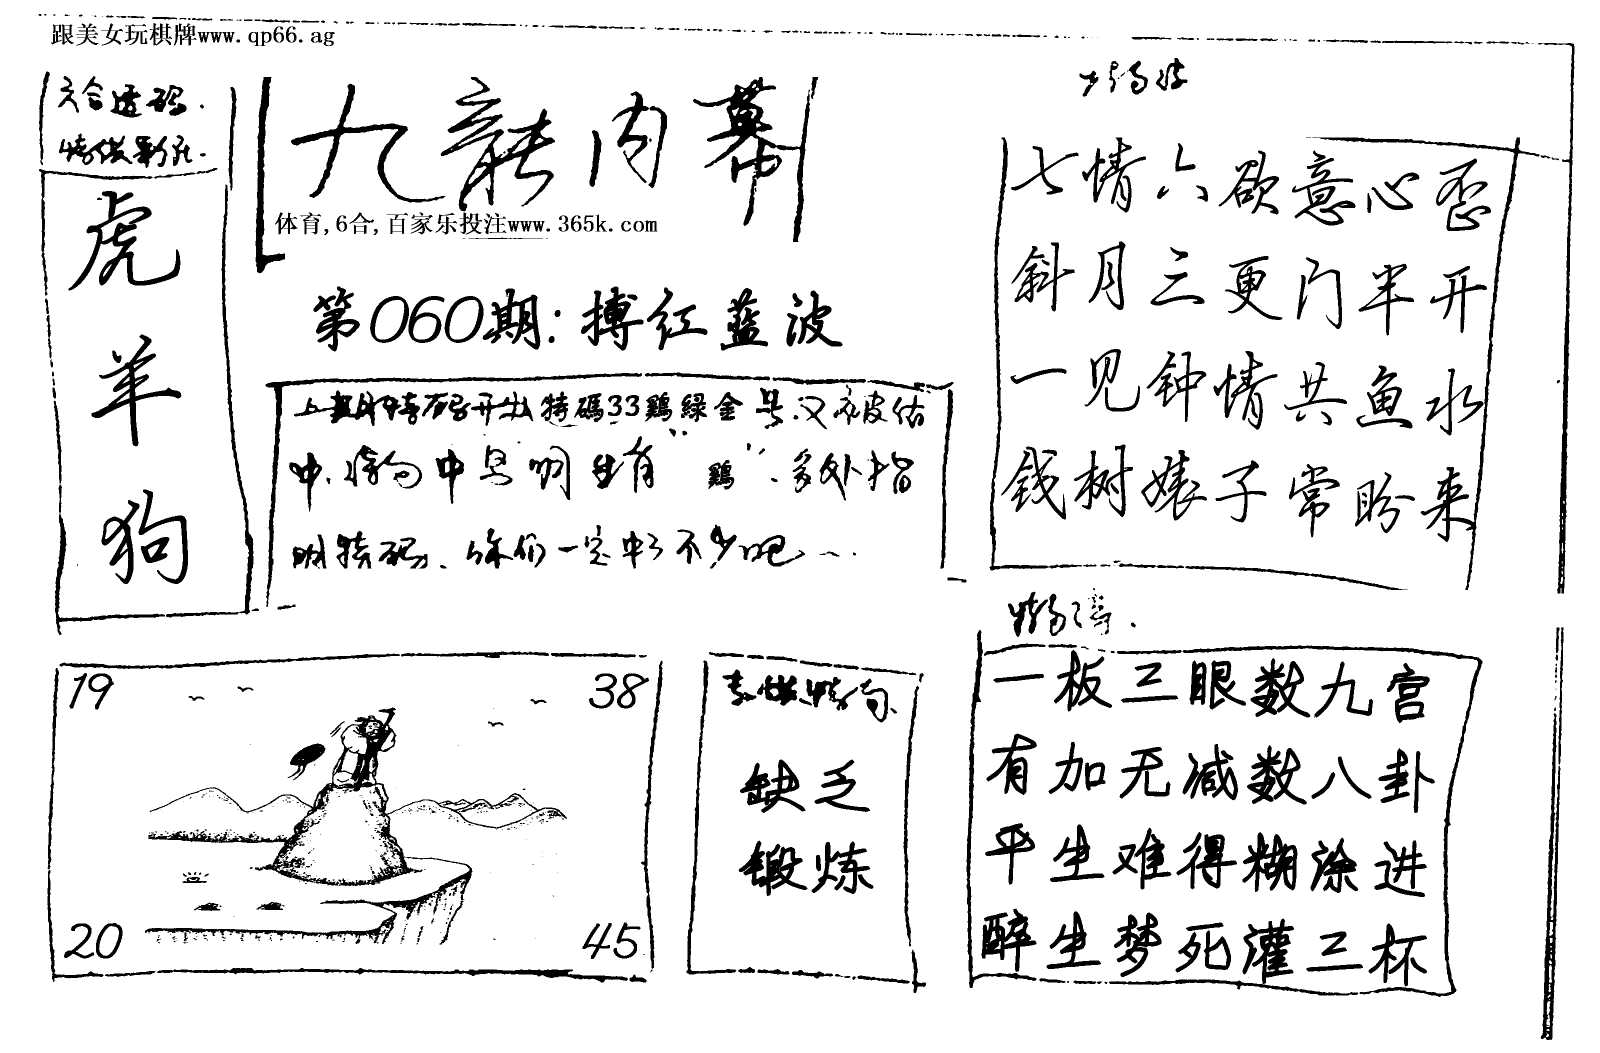 跟美女玩棋牌www.qp66.ag
六合透码.
虎
羊
狗
九龍内幕
体育,6合,百家乐投注www.365k.com
第060期:搏红蓝波
上期特码开出特碼33鷄綠金号.又被估
中.特句中早明生肖“鷄”.多处指
明特码.你们一定中了不少吧
七情六欲意心歪
斜月三更门半开
一见钟情共鱼水
钱树婊子常盼来
一板三眼数九宫
有加无减数八卦
平生难得糊涂进
醉生梦死灌三杯
19
38
20
45
缺乏
锻炼